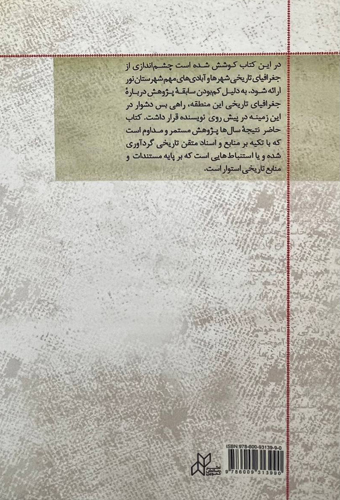 در این کتاب کوشش شده است چشم‌اندازی از
جغرافیای تاریخی شهرها و آبادی‌های مهم شهرستان نور
ارائه شود. به دلیل کم‌بودن سابقهٔ پژوهش دربارهٔ
جغرافیای تاریخی این منطقه، راهی بس دشوار در
این زمینه در پیش روی نویسنده قرار داشت. کتاب
حاضر نتیجهٔ سال‌ها پژوهش مستمر و مداوم است
که با تکیه بر منابع و اسناد متقن تاریخی گردآوری
شده و یا استنباط‌هایی است که بر پایه مستندات و
منابع تاریخی استوار است.